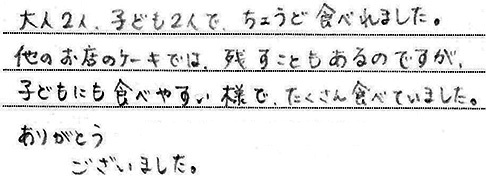 大人2人、子ども2人で、ちょうど食べれました。
他のお店のケーキでは、残すこともあるのですが、
子どもにも食べやすい様で、たくさん食べていました。
ありがとう
ございました。